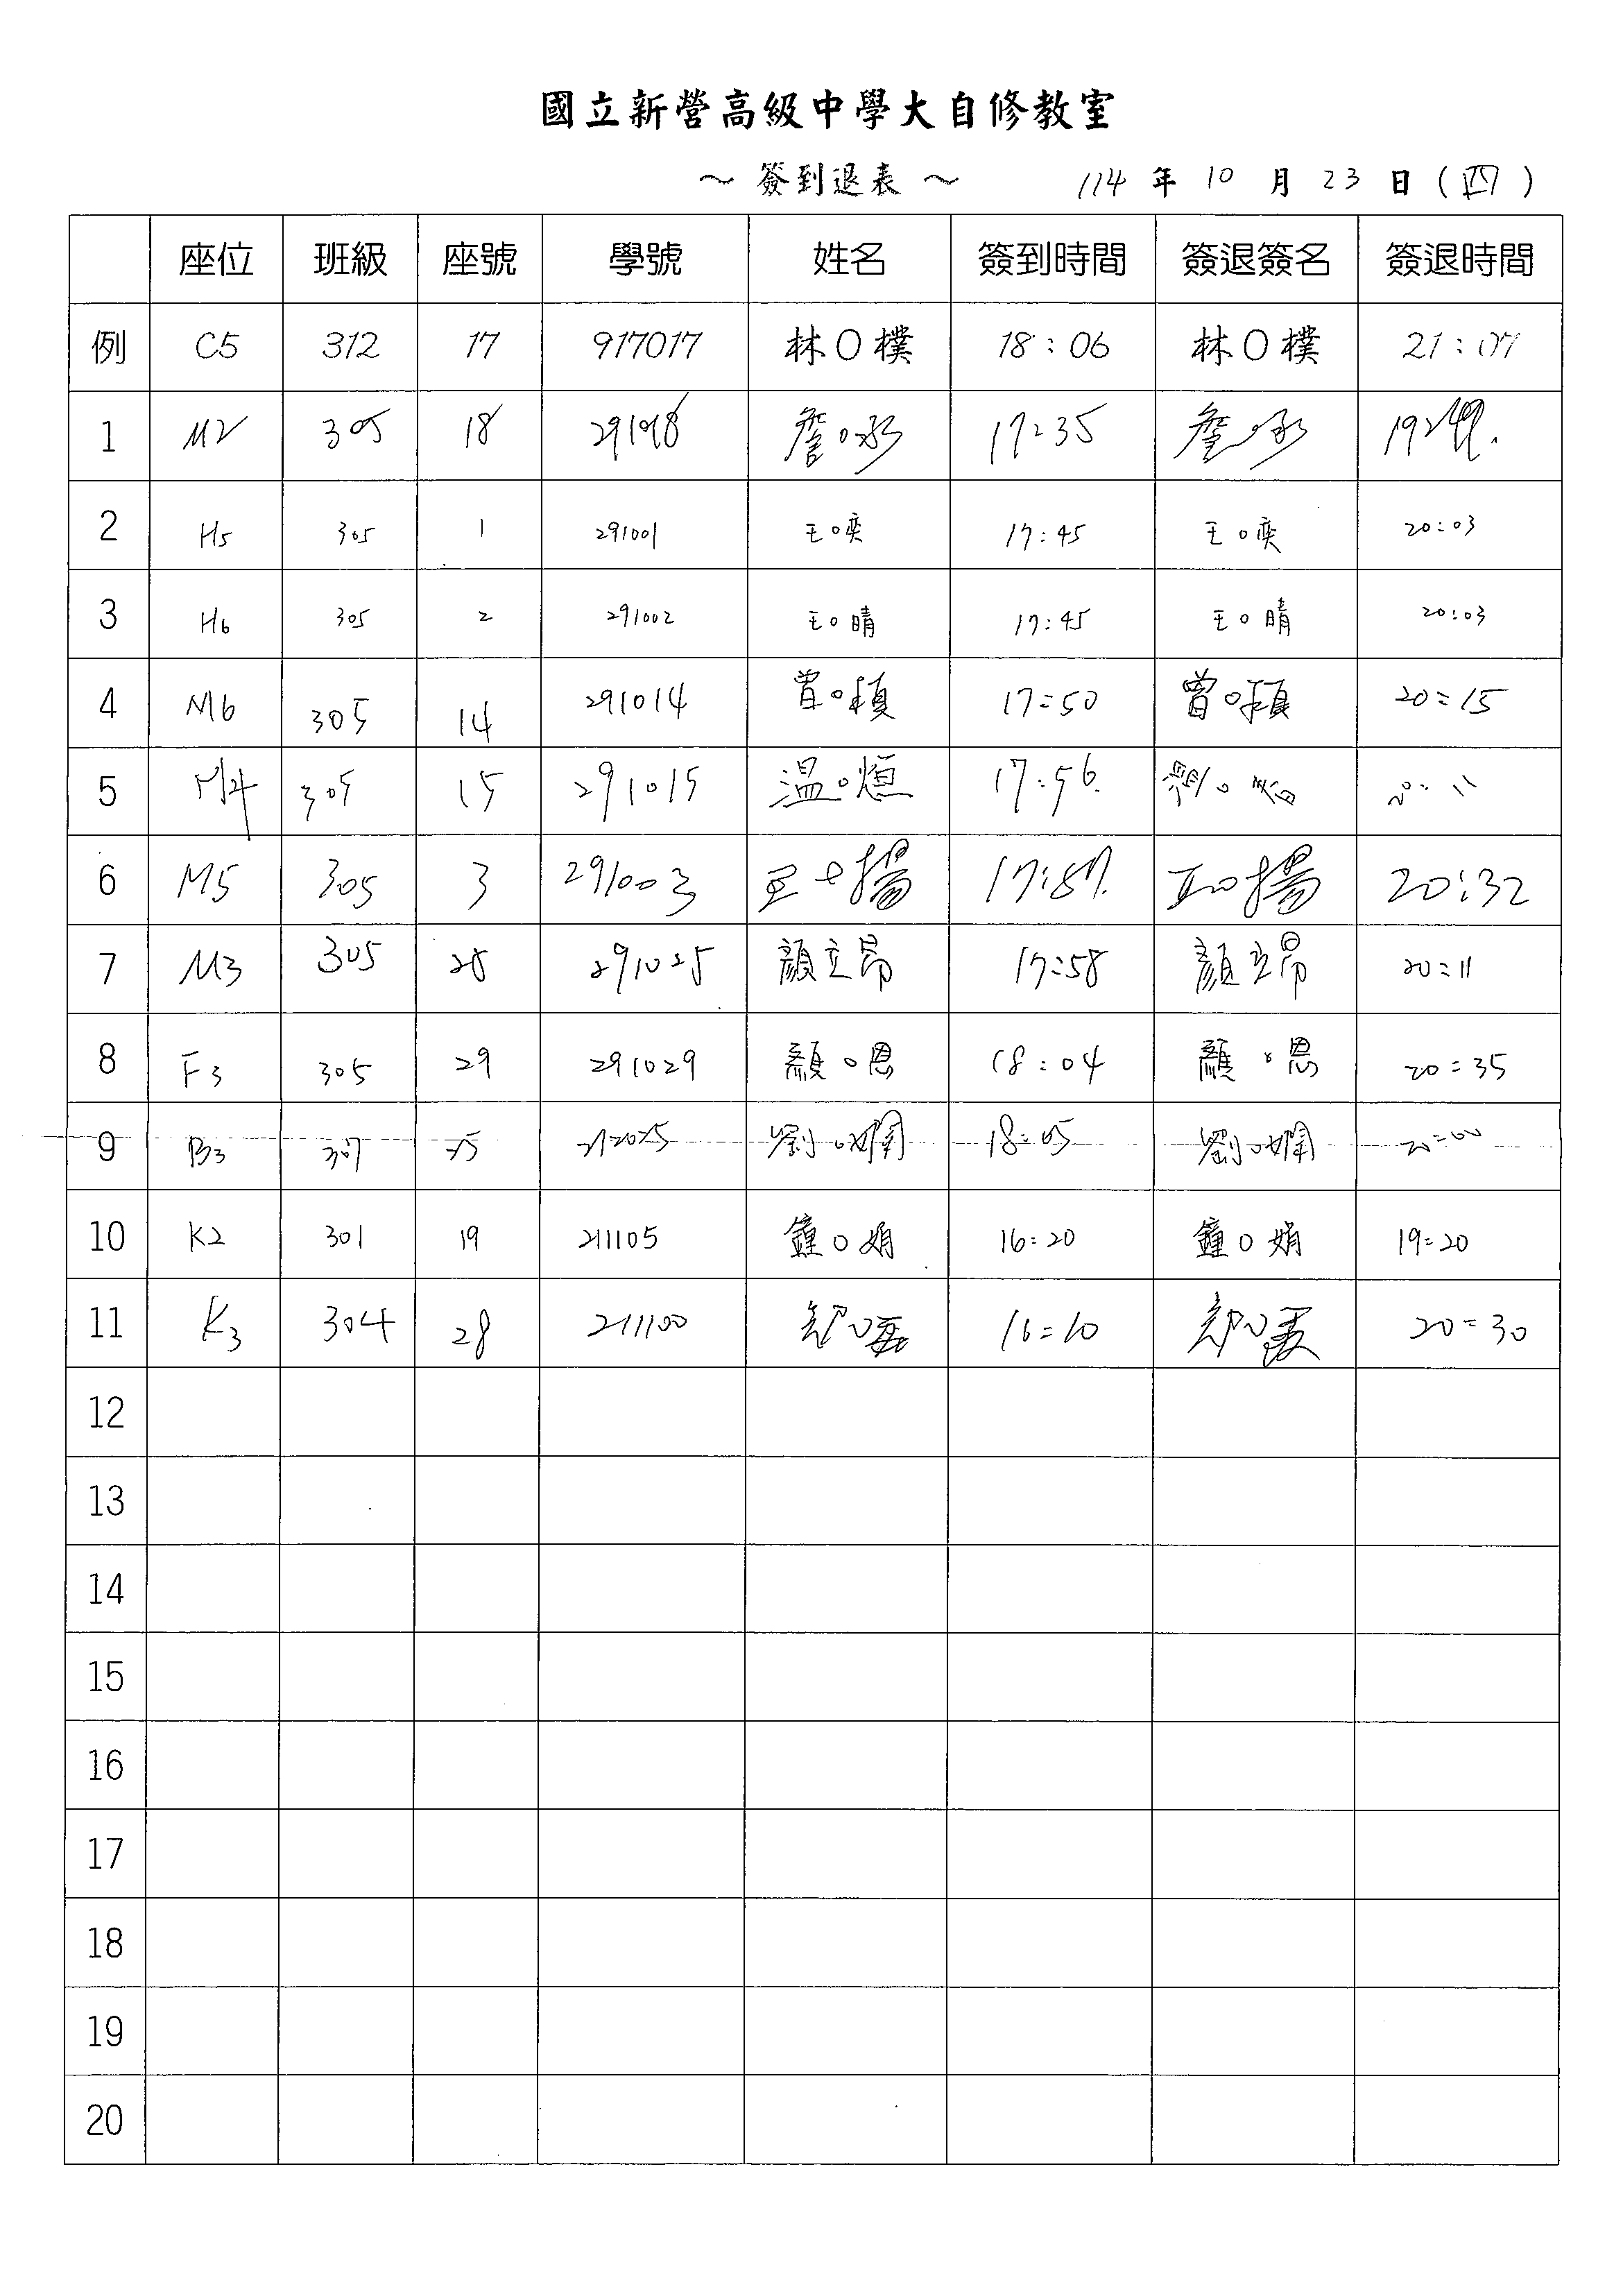 國立新營高級中學大自修教室
～簽到退表～ 114年10月23日(四)
座位 班級 座號 學號 姓名 簽到時間 簽退簽名 簽退時間
例 C5 312 17 917017 林O樸 18:06 林O樸 21:07
1 M2 305 18 291018 詹O承 17:35 詹O承
2 H5 305 1 291001 王O奕 17:45 王O奕 20:03
3 H6 305 2 291002 王O晴 17:45 王O晴 20:03
4 M6 305 14 291014 曾O禎 17:50 曾O禎 20:15
5 M4 305 15 291015 溫O烜 17:56 20:11
6 M5 305 3 291003 王O揚 17:57 王O揚 20:32
7 M3 305 25 291025 顏立昂 17:58 顏立昂 20:11
8 F3 305 29 291029 顏O恩 18:04 顏O恩 20:35
9 B3 307 25 212025 劉O嫻 18:05 劉O嫻 20:00
10 K2 301 19 211105 鐘O娟 16:20 鐘O娟 19:20
11 K3 304 28 211100 16:10 20:30
12
13
14
15
16
17
18
19
20